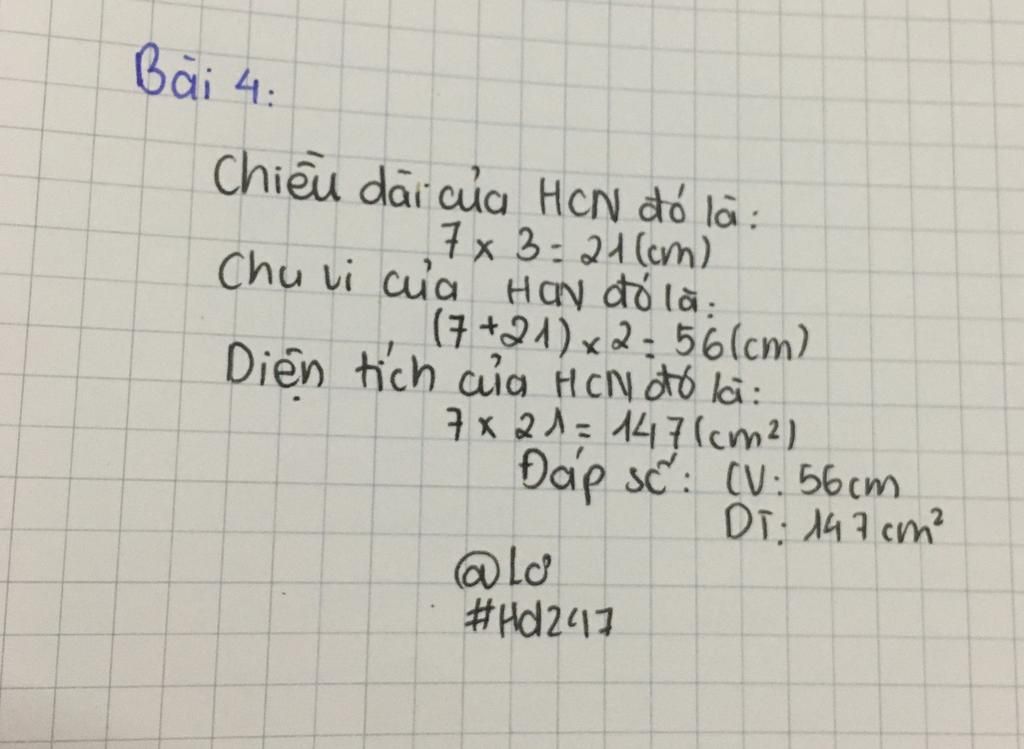 Bài 4:
Chiều dài của HCN đó là:
7 x 3 = 21 (cm)
Chu vi của HCN đó là:
(7 + 21) x 2 = 56 (cm)
Diện tích của HCN đó là:
7 x 21 = 147 (cm²)
Đáp số: CV: 56 cm
DT: 147 cm²
@Lơ
#Hd247